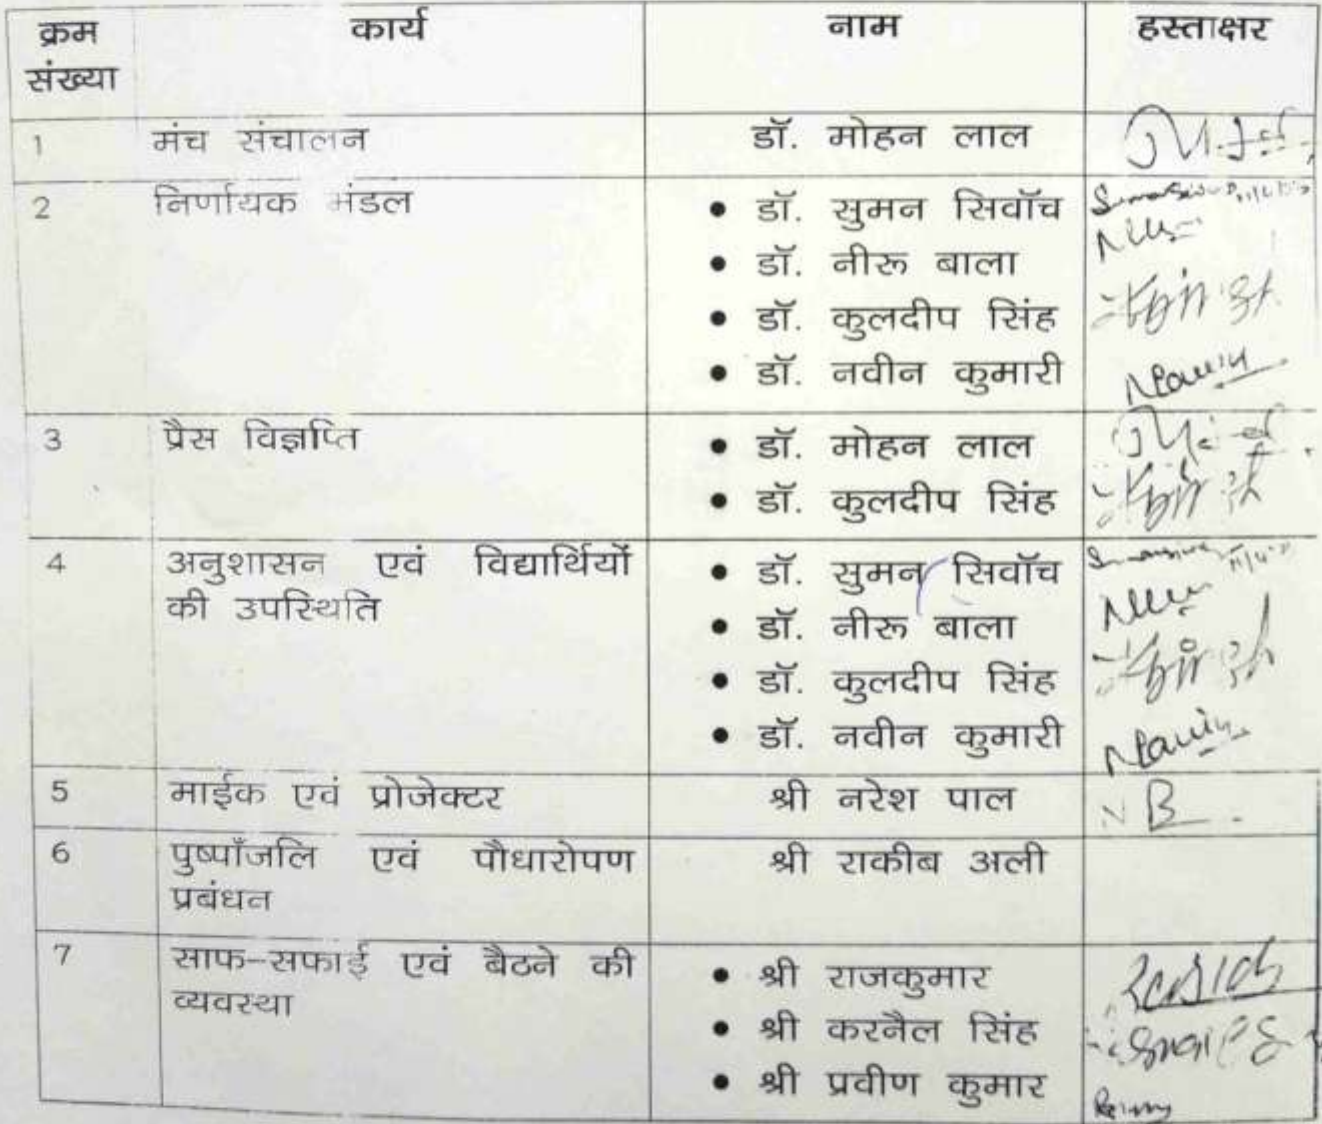 क्रम संख्या कार्य नाम हस्ताक्षर
1 मंच संचालन डॉ. मोहन लाल
2 निर्णायक मंडल • डॉ. सुमन सिवॉच
• डॉ. नीरू बाला
• डॉ. कुलदीप सिंह
• डॉ. नवीन कुमारी
3 प्रैस विज्ञप्ति • डॉ. मोहन लाल
• डॉ. कुलदीप सिंह
4 अनुशासन एवं विद्यार्थियों • डॉ. सुमन सिवॉच
की उपस्थिति • डॉ. नीरू बाला
• डॉ. कुलदीप सिंह
• डॉ. नवीन कुमारी
5 माईक एवं प्रोजेक्टर श्री नरेश पाल
6 पुष्पाँजलि एवं पौधारोपण श्री राकीब अली
प्रबंधन
7 साफ-सफाई एवं बैठने की • श्री राजकुमार
व्यवस्था • श्री करनैल सिंह
• श्री प्रवीण कुमार